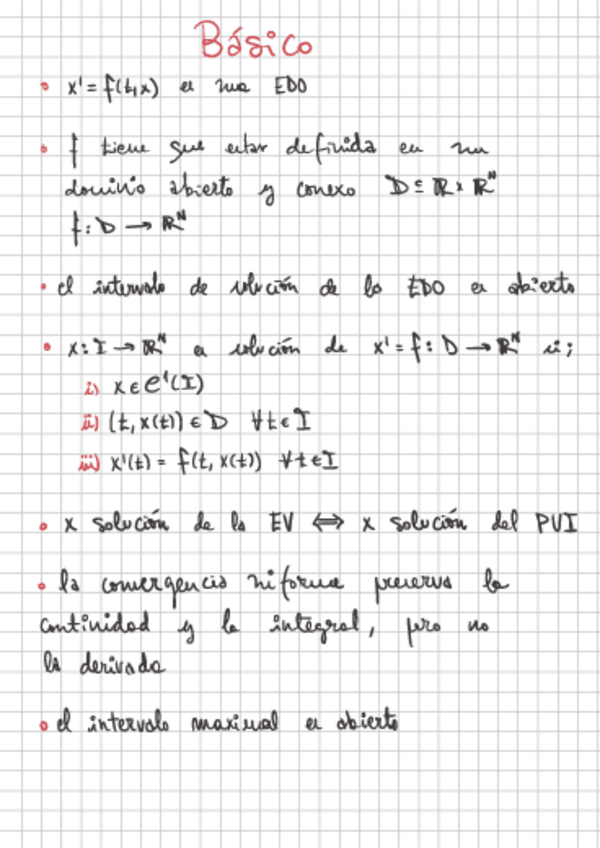 Básico
• x' = f(t,x) es una EDO
• f tiene que estar definida en un
dominio abierto y conexo D ⊆ ℝ x ℝᴺ
f: D → ℝᴺ
• el intervalo de solución de la EDO es abierto
• x: I → ℝᴺ es solución de x' = f: D → ℝᴺ si;
i) x ∈ C¹(I)
ii) (t, x(t)) ∈ D ∀t ∈ I
iii) x'(t) = f(t, x(t)) ∀t ∈ I
• x solución de la EV ⟺ x solución del PVI
• la convergencia uniforme preserva la
continidad y la integral, pero no
la derivada
• el intervalo maximal es abierto